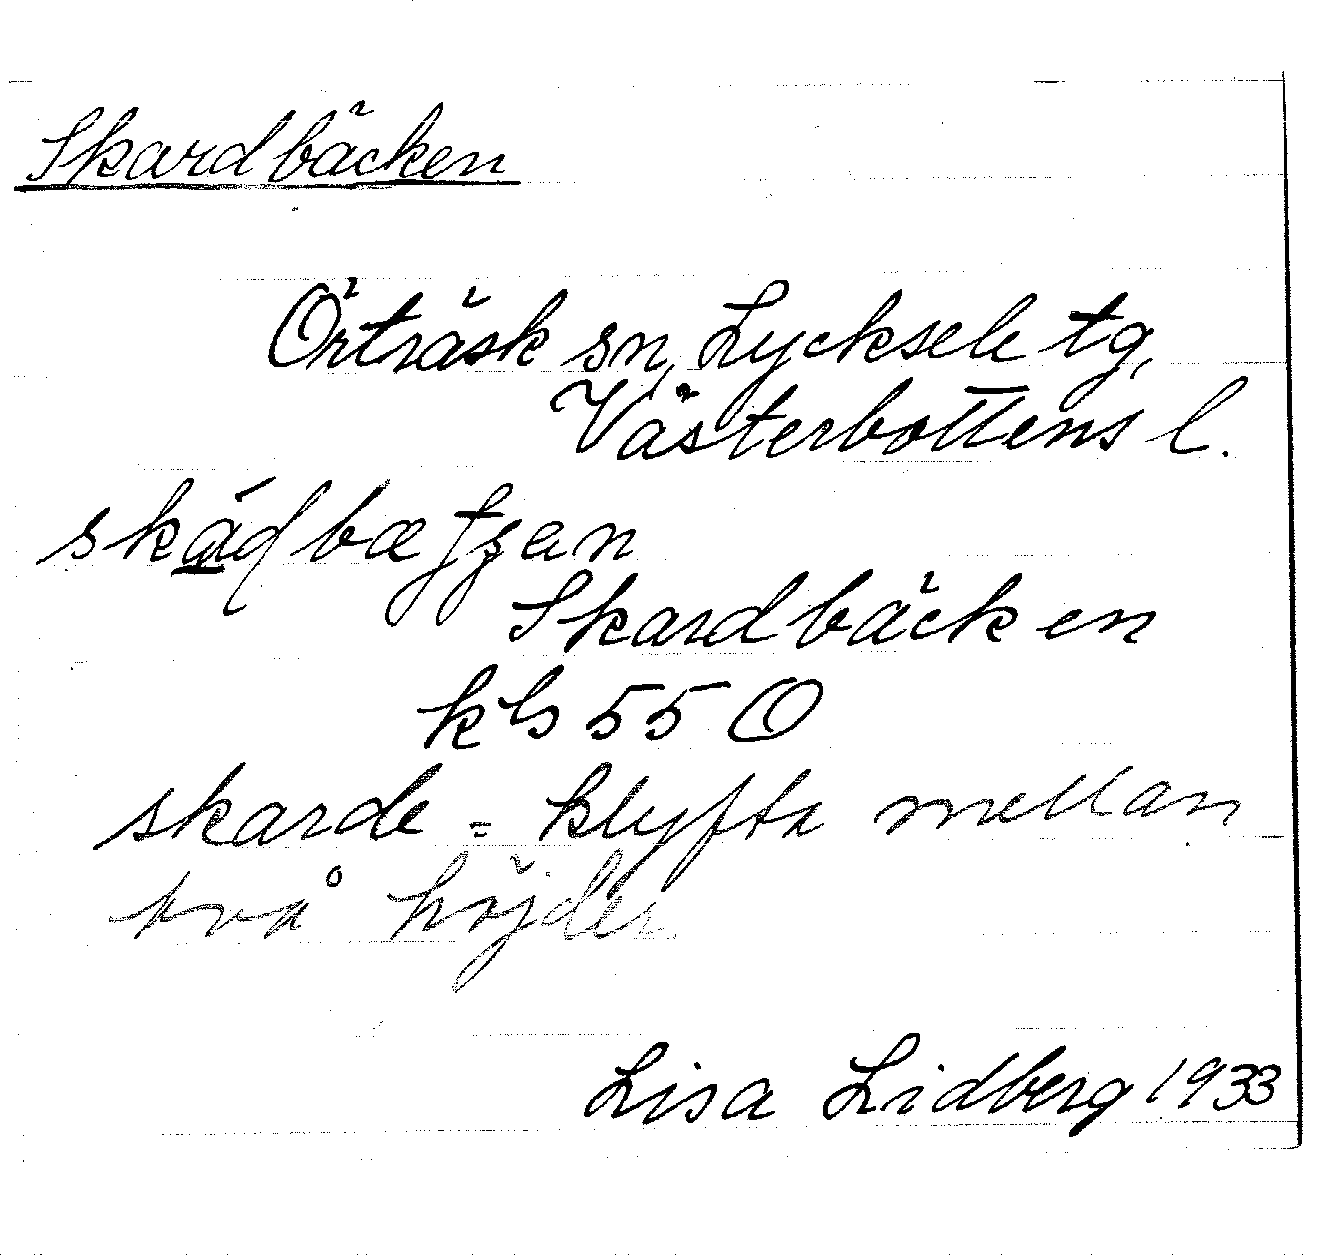 Skardbäcken
Örträsk sn, Lycksele tg,
Västerbottens l.
Skardbäcken
kbs 55 O
skarde = klyfta mellan
två höjder
Lisa Lidberg 1933